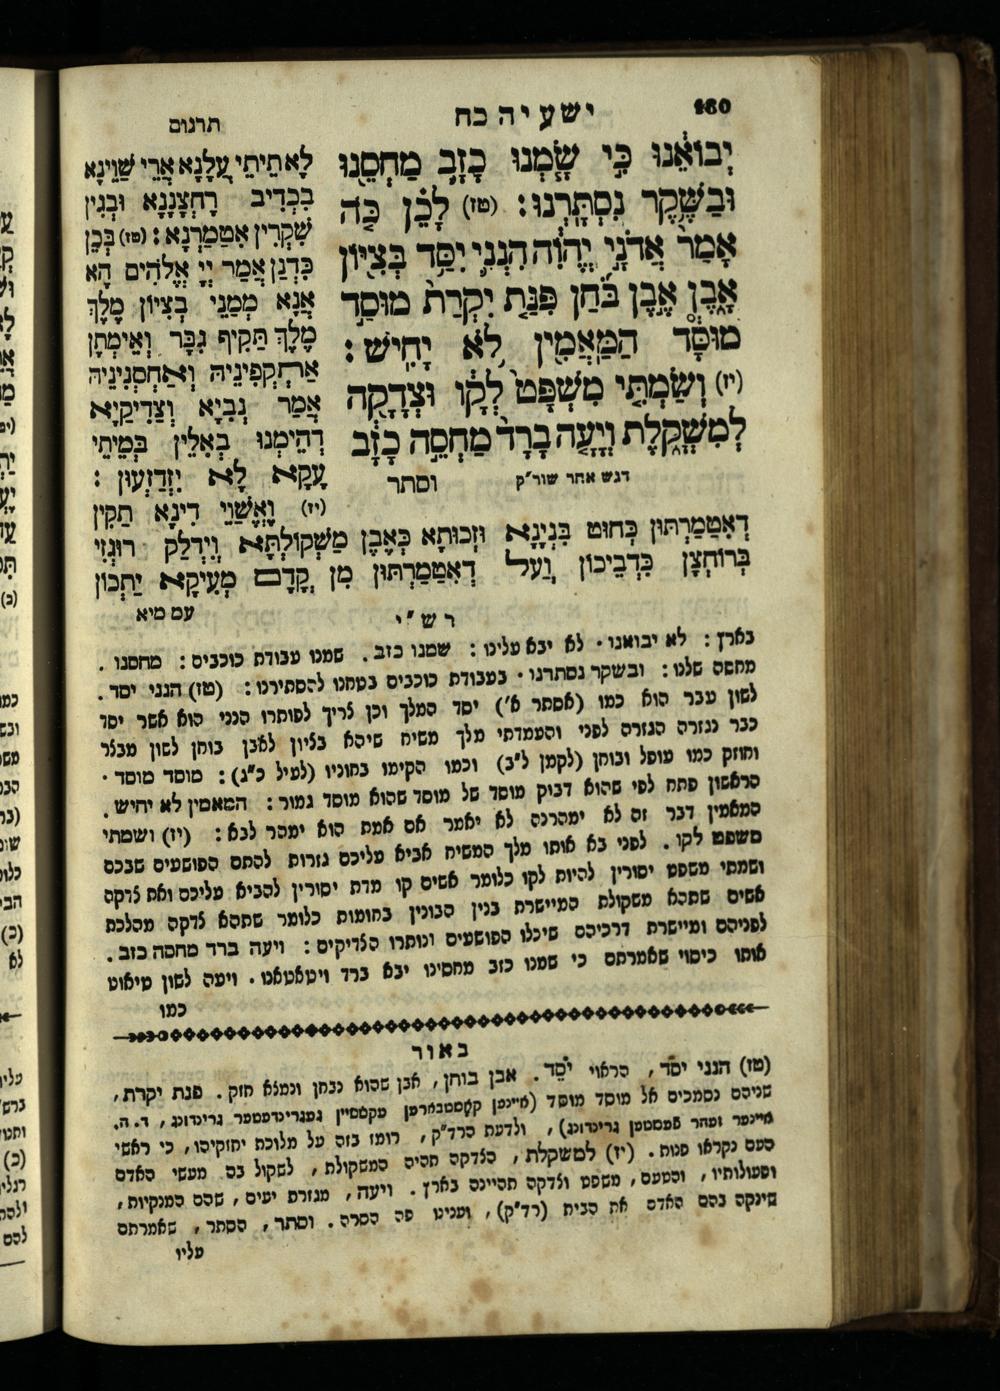 160
ישעיה כח
תרגום
יְבוֹאֵ֔נוּ כִּ֣י שַׂ֧מְנוּ כָזָ֛ב מַחְסֵ֖נוּ
וּבַשֶּׁ֥קֶר נִסְתָּֽרְנוּ׃ (טז) לָכֵ֗ן כֹּ֤ה
אָמַר֙ אֲדֹנָ֣י יֱהֹוִ֔ה הִנְנִ֛י יִסַּ֥ד בְּצִיּ֖וֹן
אָ֑בֶן אֶ֣בֶן בֹּ֜חַן פִּנַּ֤ת יִקְרַת֙ מוּסָ֣ד
מוּסָּ֔ד הַֽמַּאֲמִ֖ין לֹ֥א יָחִֽישׁ׃
(יז) וְשַׂמְתִּ֤י מִשְׁפָּט֙ לְקָ֔ו וּצְדָקָ֖ה
לְמִשְׁקָ֑לֶת וְיָעָ֤ה בָרָד֙ מַחְסֵ֣ה כָזָ֔ב
דגש אחר שור״ק
וסתר
לָא תֵיתֵי עֲלָנָא אֲרֵי שַׁוֵינָא
בִּכְדִיב רָחְצָנָנָא וּבְגִין
שִׁקְרִין אִטַמַרְנָא׃ (טז) בְּכֵן
כִּדְנַן אֲמַר יְיָ אֱלֹהִים הָא
אֲנָא מְמַנֵי בְצִיוֹן מֶלֶךְ
מֶלֶךְ תַּקִיף גִבָּר וְאֵימְתָן
אַתְקְפִינֵיהּ וְאַחְסְנִינֵיהּ
אֲמַר נְבִיָא וְצַדִיקַיָא
דְהֵימְנוּ בְאִלֵין בְּמֵיתֵי
עָקָא לָא יִזְדַזְעוּן׃
(יז) וֶאֱשַׁוֵי דִינָא תַּקִין
כְּחוּט בִּנְיָנָא וְזָכוּתָא כְּאֶבֶן מַשְׁקוֹלְתָּא וְיִדְלַק רוּגְזִי
דְאִטַמַרְתּוּן
בְּרוֹחְצָן כַּדְבֵיכוֹן וְעַל דְאִטַמַרְתּוּן מִן קֳדָם מְעִיקָא יַתְכוֹן
עם מיא
רש״י
בארץ׃ לא יבואנו. לא יבא עלינו׃ שמנו כזב. שמנו עבודת כוכבים׃ מחסנו.
מחסה שלנו׃ ובשקר נסתרנו. בעבודת כוכבים בטחנו להסתירנו׃ (טז) הנני יסד.
לשון עבר הוא כמו (אסתר א׳) יסד המלך וכן צריך לפותרו הנני הוא אשר יסד
כבר נגזרה הגזרה לפני והעמדתי מלך משיח שיהא בציון לאבן בוחן לשון מבצר
וחוזק כמו עופל ובוחן (לקמן ל״ב) וכמו הקימו בחוניו (לעיל כ״ג)׃ מוסד מוסד.
הראשון פתח לפי שהוא דבוק מוסד של מוסד שהוא מוסד גמור׃ המאמין לא יחיש.
המאמין דבר זה לא ימהרנה לא יאמר אם אמת הוא ימהר לבא׃ (יז) ושמתי
משפט לקו. לפני בא אותו מלך המשיח אביא עליכם גזרות להתם הפושעים שבכם
ושמתי משפט יסורין להיות לקו כלומר אשים קו מדת יסורין להביא עליכם ואת צדקה
אשים שתהא משקולת המיישרת בנין הבונין בחומות כלומר שתהא צדקה מהלכת
לפניהם ומיישרת דרכיהם שיכלו הפושעים ונותרו הצדיקים׃ ויעה ברד מחסה כזב.
אותו כיסוי שאמרתם כי שמנו כזב מחסינו יבא ברד ויטאטאנו. ויעה לשון טיאוט
כמו
באור
(טז) הנני יסד, הראוי יֹסֵד. אבן בוחן, אבן שהוא נבחן ונמצא חזק. פנת יקרת,
שניהם נסמכים אל מוסד מוסד (איינען קאָסטבארען עקשטיין געגרינדעטער גרינדונג, ד. ה.
איינער זעהר פעסטען גרינדונג), ולדעת הרד״ק, רומז בזה על מלוכת יחזקיהו, כי ראשי
העם נקראו פנות. (יז) למשקלת, הצדקה תהיה המשקולת, לשקול בם מעשי האדם
ופעולותיו, והטעם, משפט וצדקה תהיינה בארץ. ויעה, מגזרת יעים, שהם המנקיות,
שינקה בהם האדם את הבית (רד״ק), וענינו פה הסרה. וסתר, הסתר, שאמרתם
עליו